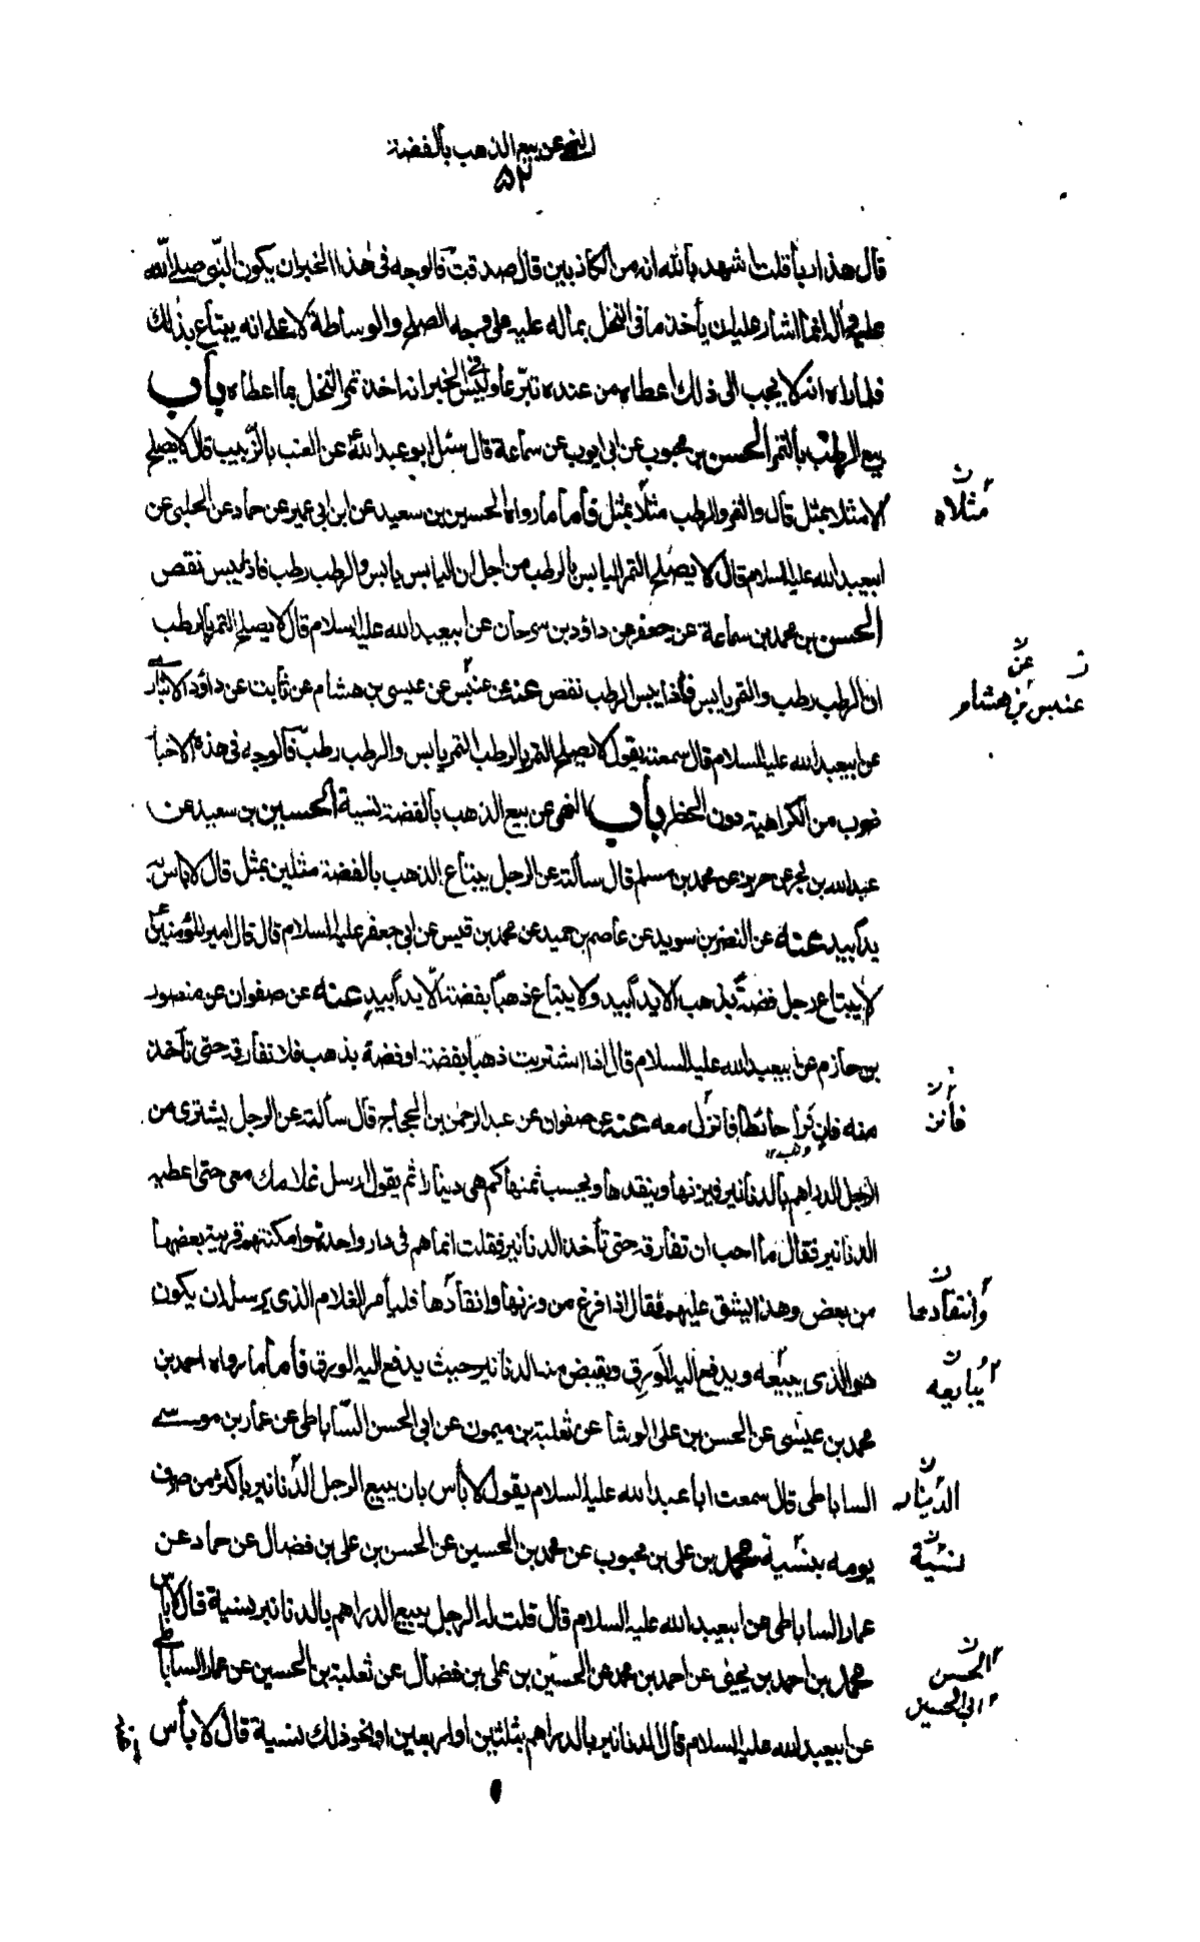 النهى عن بيع الذهب بالفضة
٥٢
قال هذا ربا قلت اشهد بالله انه من الكاذبين قال صدقت فالوجه فى هذا الخبر ان يكون النبى صلى الله
عليه وآله انما اشار عليه ان يأخذ ما فى النخل بماله عليه على وجه الصلح والوساطة لا على انه يبتاع بذلك
فلما راه انه لا يجب الى ذلك اعطاه من عنده تبرعا وليس فى الخبر انه اخذ تمر النخل بما اعطاه باب
بيع الرطب بالتمر الحسن بن محبوب عن ابى ايوب عن سماعة قال سئل ابو عبد الله عن العنب بالزبيب قال لا يصلح
الا مثلا بمثل قال والتمر والرطب مثلا بمثل فأما ما رواه الحسين بن سعيد عن ابن ابى عمير عن حماد عن الحلبى عن
مثلاه
ابيعبد الله عليه السلام قال لا يصلح التمر اليابس بالرطب من اجل ان اليابس يابس والرطب رطب فاذا يبس نقص
الحسن بن محمد بن سماعة عن جعفر عن داود بن سرحان عن ابيعبد الله عليه السلام قال لا يصلح التمر بالرطب
ان الرطب رطب والتمر يابس فاذا يبس الرطب نقص عنه عن عنبس عن عيسى بن هشام عن ثابت عن داود الابزارى
عن
عنبس بن هشام
عن ابيعبد الله عليه السلام قال سمعته يقول لا يصلح التمر بالرطب التمر يابس والرطب رطب فالوجه فى هذه الاخبار
ضرب من الكراهية دون الحظر باب النهى عن بيع الذهب بالفضة نسية الحسين بن سعيد عن
عبد الله بن بحر عن حريز عن محمد بن مسلم قال سألته عن الرجل يبتاع الذهب بالفضة مثلين بمثل قال لا بأس به
يدا بيد عنه عن النضر بن سويد عن عاصم بن حميد عن محمد بن قيس عن ابى جعفر عليه السلام قال قال امير المؤمنين
لا يبتاع رجل فضة بذهب الا يدا بيد ولا يبتاع ذهبا بفضة الا يدا بيد عنه عن صفوان عن منصور
بن حازم عن ابيعبد الله عليه السلام قال اذا اشتريت ذهبا بفضة او فضة بذهب فلا تفارقه حتى تأخذ
منه فان نزا حائطا فانزل معه عنه عن صفوان عن عبد الرحمن بن الحجاج قال سألته عن الرجل يشترى من
فانز
الرجل الدراهم بالدنانير فيزنها وينقدها ويحسب ثمنها كم هى دينارا ثم يقول ارسل غلامك معى حتى اعطيه
الدنانير فقال ما احب ان تفارقه حتى تأخذ الدنانير فقلت انما هم فى دار واحدة وامكنتهم قريبة بعضها
من بعض وهذا يشق عليهم فقال اذا فرغ من وزنها وانقادها فليأمر الغلام الذى يرسله ان يكون
وانتقادها
هو الذى يبيعه ويدفع اليه الورق ويقبض منه الدنانير حيث يدفع اليه الورق فأما ما رواه احمد بن
يبايعه
محمد بن عيسى عن الحسن بن على الوشا عن ثعلبة بن ميمون عن ابى الحسن الساباطى عن عمار بن موسى
الساباطى قال سمعت ابا عبد الله عليه السلام يقول لا بأس بان يبيع الرجل الدنانير باكثر من صرف
الدينار
يومه بنسية محمد بن على بن محبوب عن محمد بن الحسين عن الحسن بن على بن فضال عن حماد عن
نسية
عمار الساباطى عن ابيعبد الله عليه السلام قال قلت له الرجل يبيع الدراهم بالدنانير بنسية قال لا بأس
محمد بن احمد بن يحيى عن احمد بن محمد عن الحسين بن على بن فضال عن ثعلبة بن الحسين عن عمار الساباطى
الحسن
ابى الحسين
عن ابيعبد الله عليه السلام قال الدنانير بالدراهم بثلثين او اربعين او نحو ذلك نسية قال لا بأس